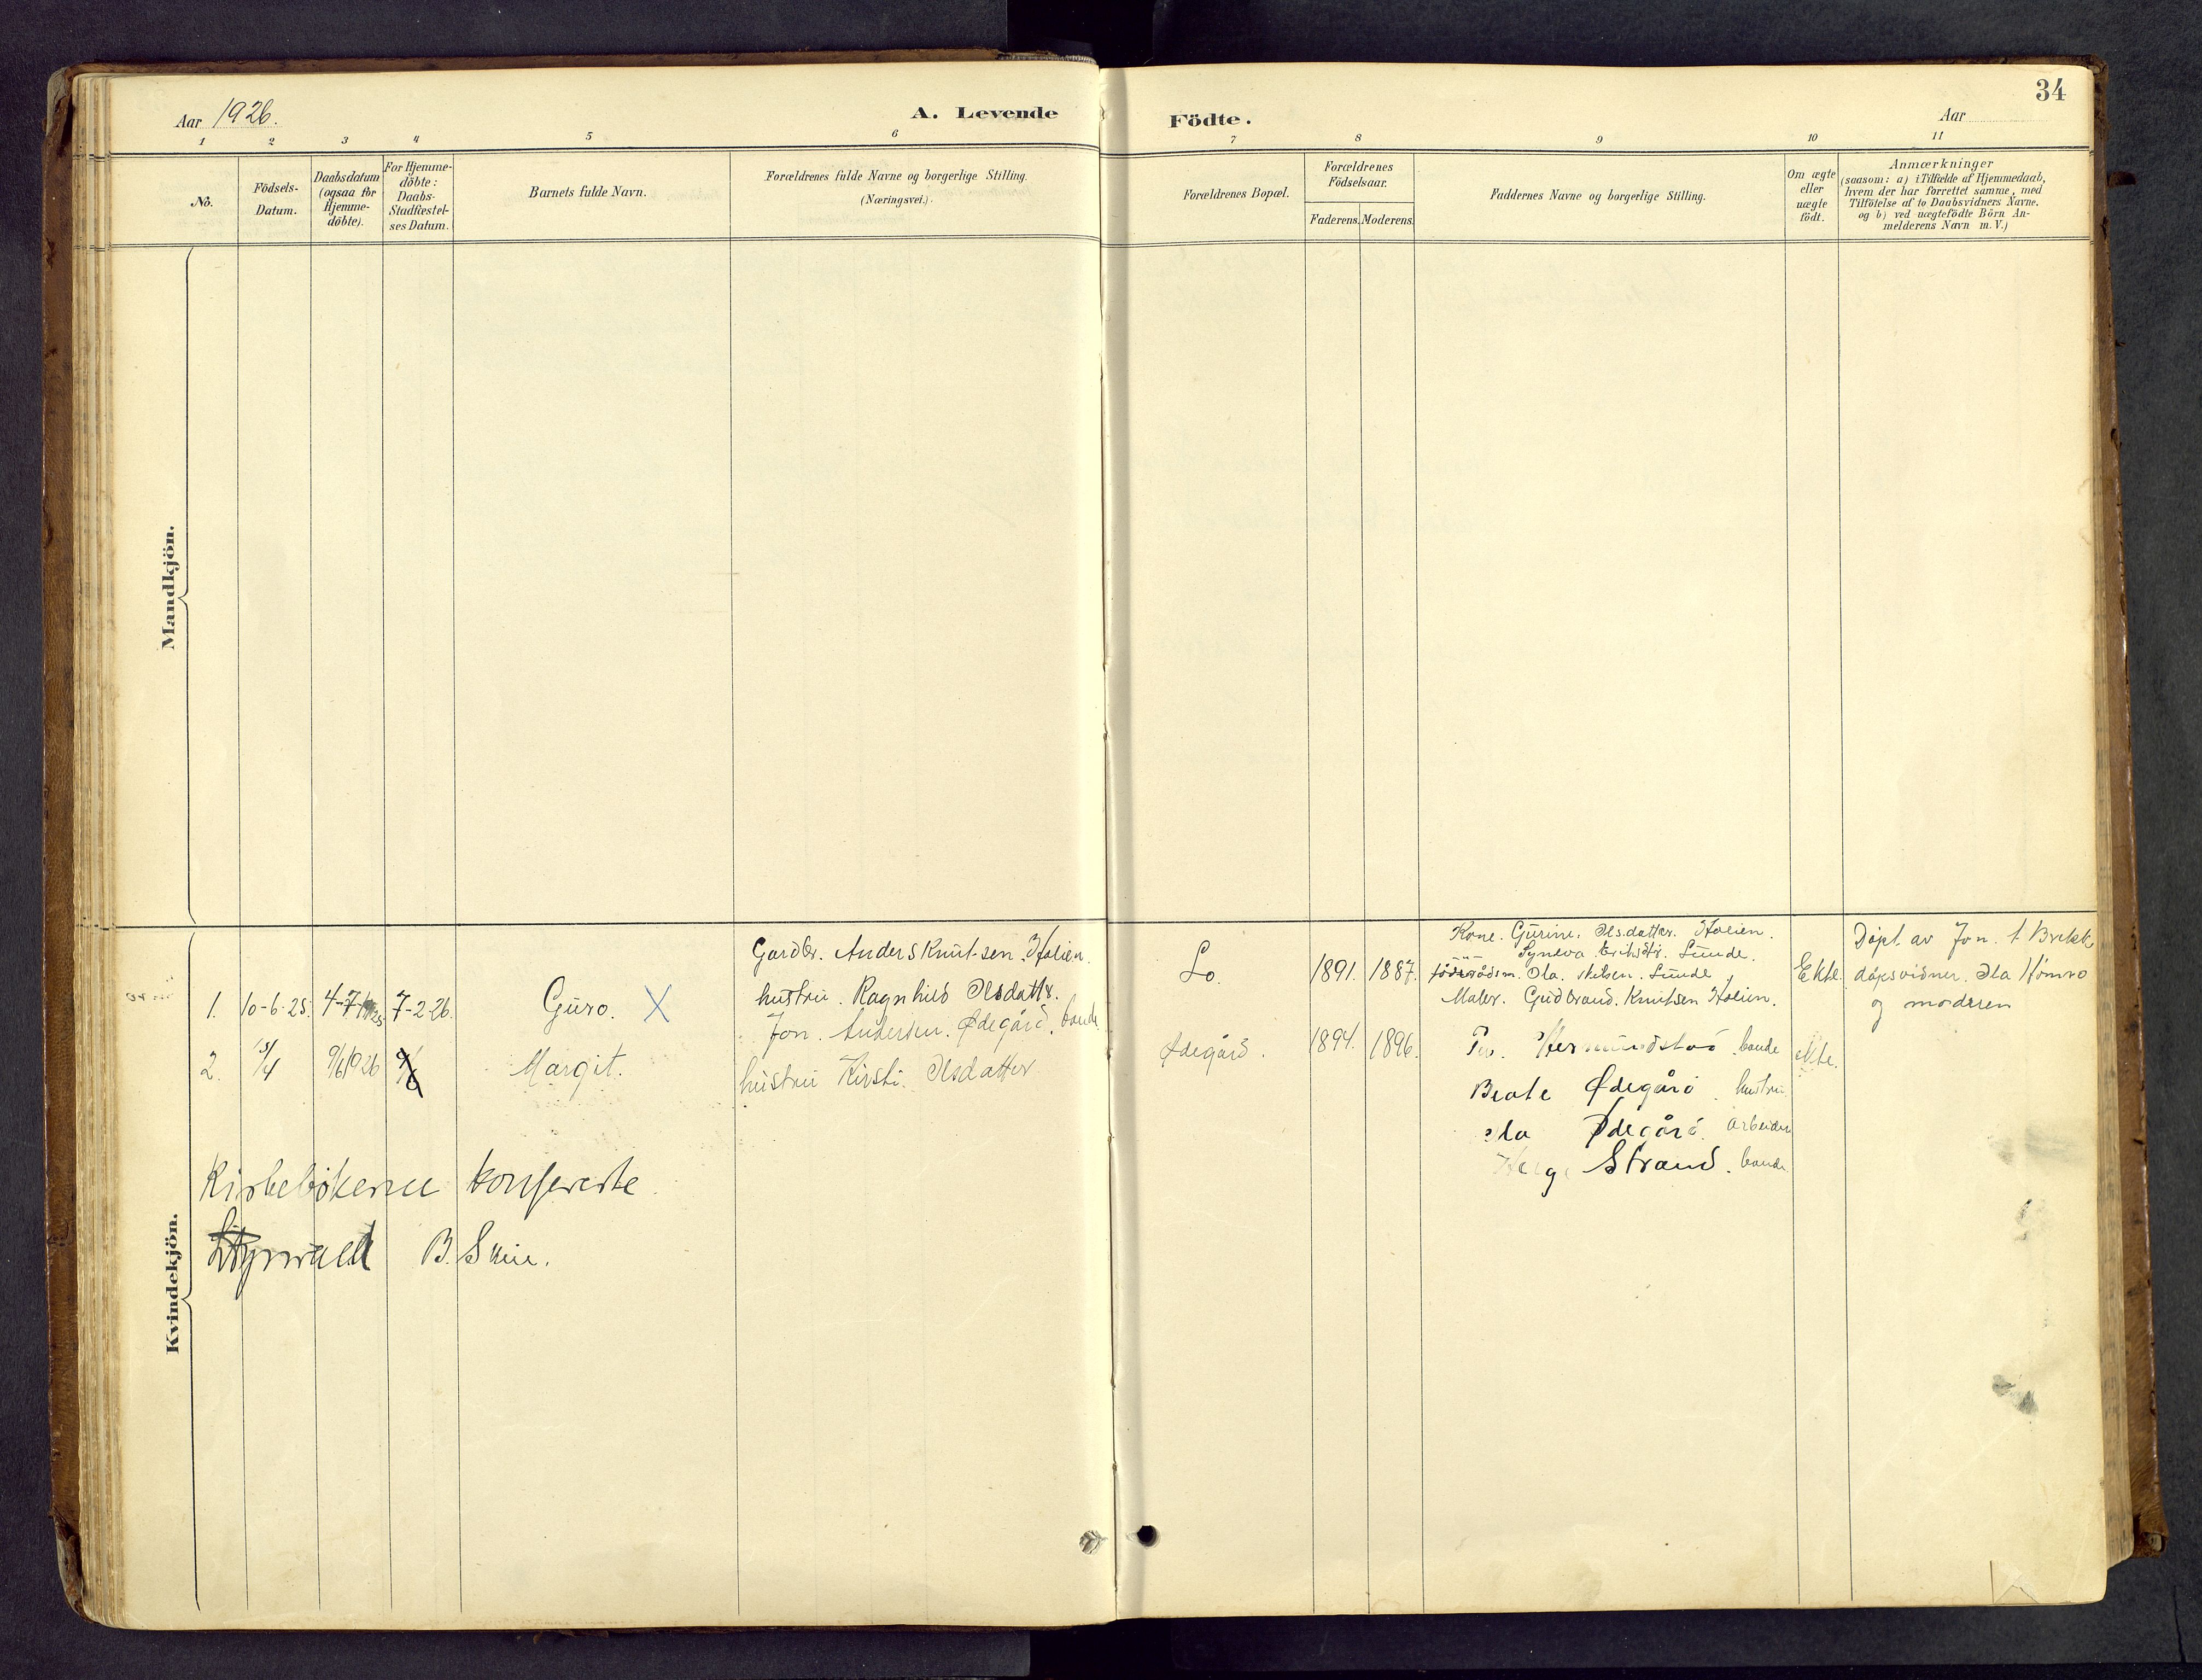 34
Aar 1926.
A. Levende
Födte.
Aar
1 2 3 4 5 6 7 8 9 10 11
No.
Födsels-
Datum.
Daabsdatum
(ogsaa for
Hjemme-
döbte).
For Hjemme-
döbte:
Daabs-
Stadfæstel-
ses Datum.
Barnets fulde Navn.
Forældrenes fulde Navne og borgerlige Stilling.
(Næringsvei.)
Forældrenes Bopæl.
Forældrenes
Födselsaar.
Faderens. Moderens.
Faddernes Navne og borgerlige Stilling.
Om ægte
eller
uægte
födt.
Anmærkninger
(saasom: a) i Tilfælde af Hjemmedaab,
hvem der har forrettet samme, med
Tilföielse af to Daabsvidners Navne.
og b) ved uægtefödte Börn An-
melderens Navn m.V.)
Mandkjön.
Kvindekjön.
1. 10-6-25. 4-7- 7-2-26. Guro. X
Gardbr. Anders Knutsen Holien.
hustru. Ragnhild Olsdattr.
Lo. 1891. 1887.
Kone. Gurine. Olsdatter. Holien.
Syneva Lunde.
Ola. Lunde
Maler. Gudbrand. Knutsen Holien.
Ekte.
Döpt. av Jon. t. Brekk
dåpsvidner. Ola Hömro
og moderen
2. 15/4 9/6 1926 9/6 Margit.
Jon. Andersen. Ødegård. bonde
hustru Kirsti. Olsdatter
Ødegård. 1894. 1896.
Per. Hermundstad. bonde
Beate Ødegård. hustru
Ola Ødegård. arbeider
Helge Strand. bonde
Ekte.
Kirkebøkerne konfererte
B. Skeie.